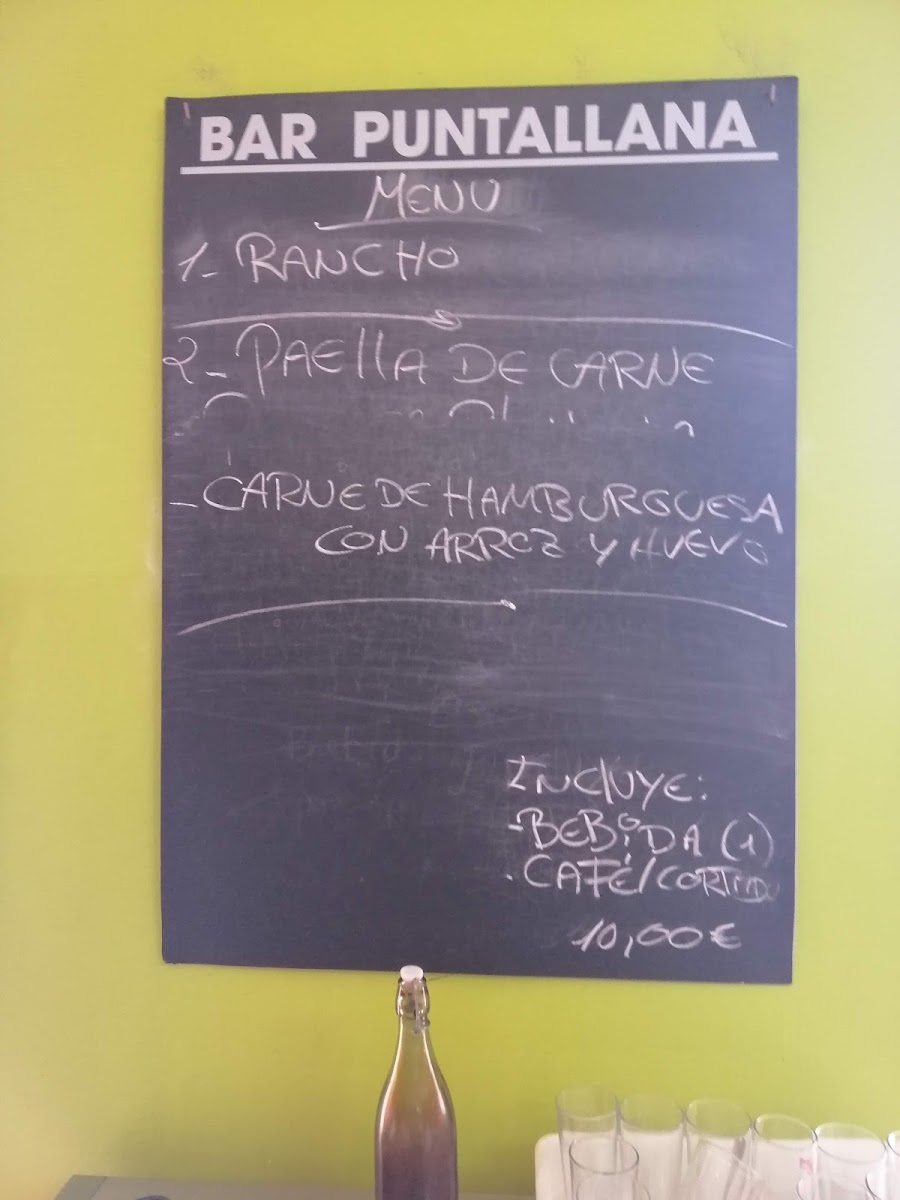 BAR PUNTALLANA
MENU
1- RANCHO
2- PAELLA DE CARNE
- CARNE DE HAMBURGUESA
CON ARROZ Y HUEVO
INCLUYE:
- BEBiDA (1)
. CAFÉ/CORTADO
10,00€